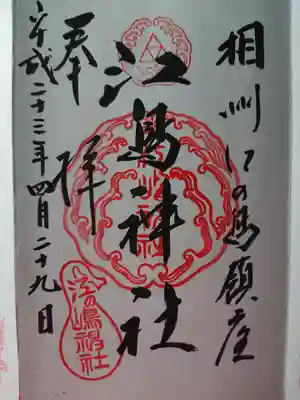 相州江の島鎮座
江島神社
奉拝
平成二十三年四月二十九日
江嶋神社